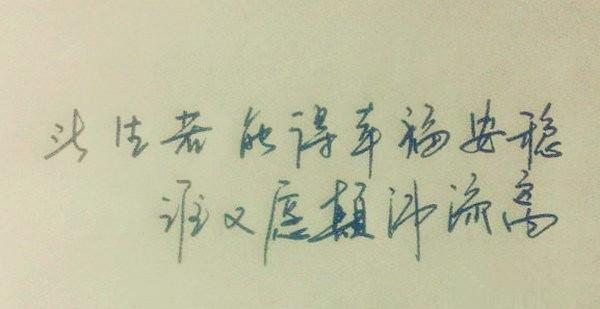 此生若能得幸福安稳
谁又愿颠沛流离